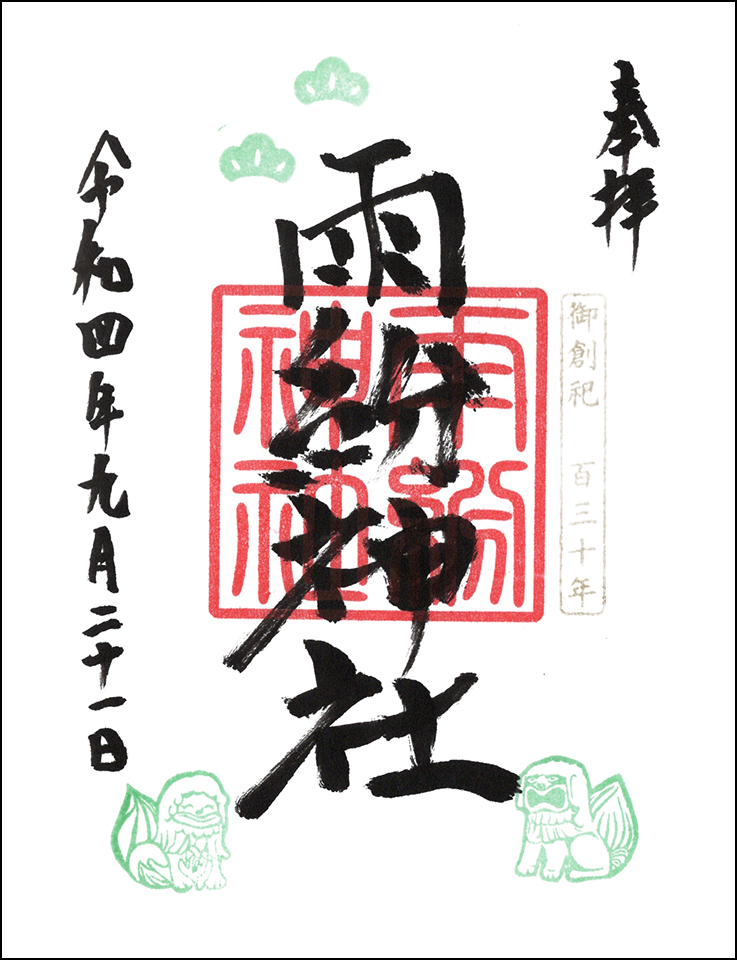 奉拝
御創祀 百三十年
雨紛神社
雨紛
神社
令和四年九月二十一日